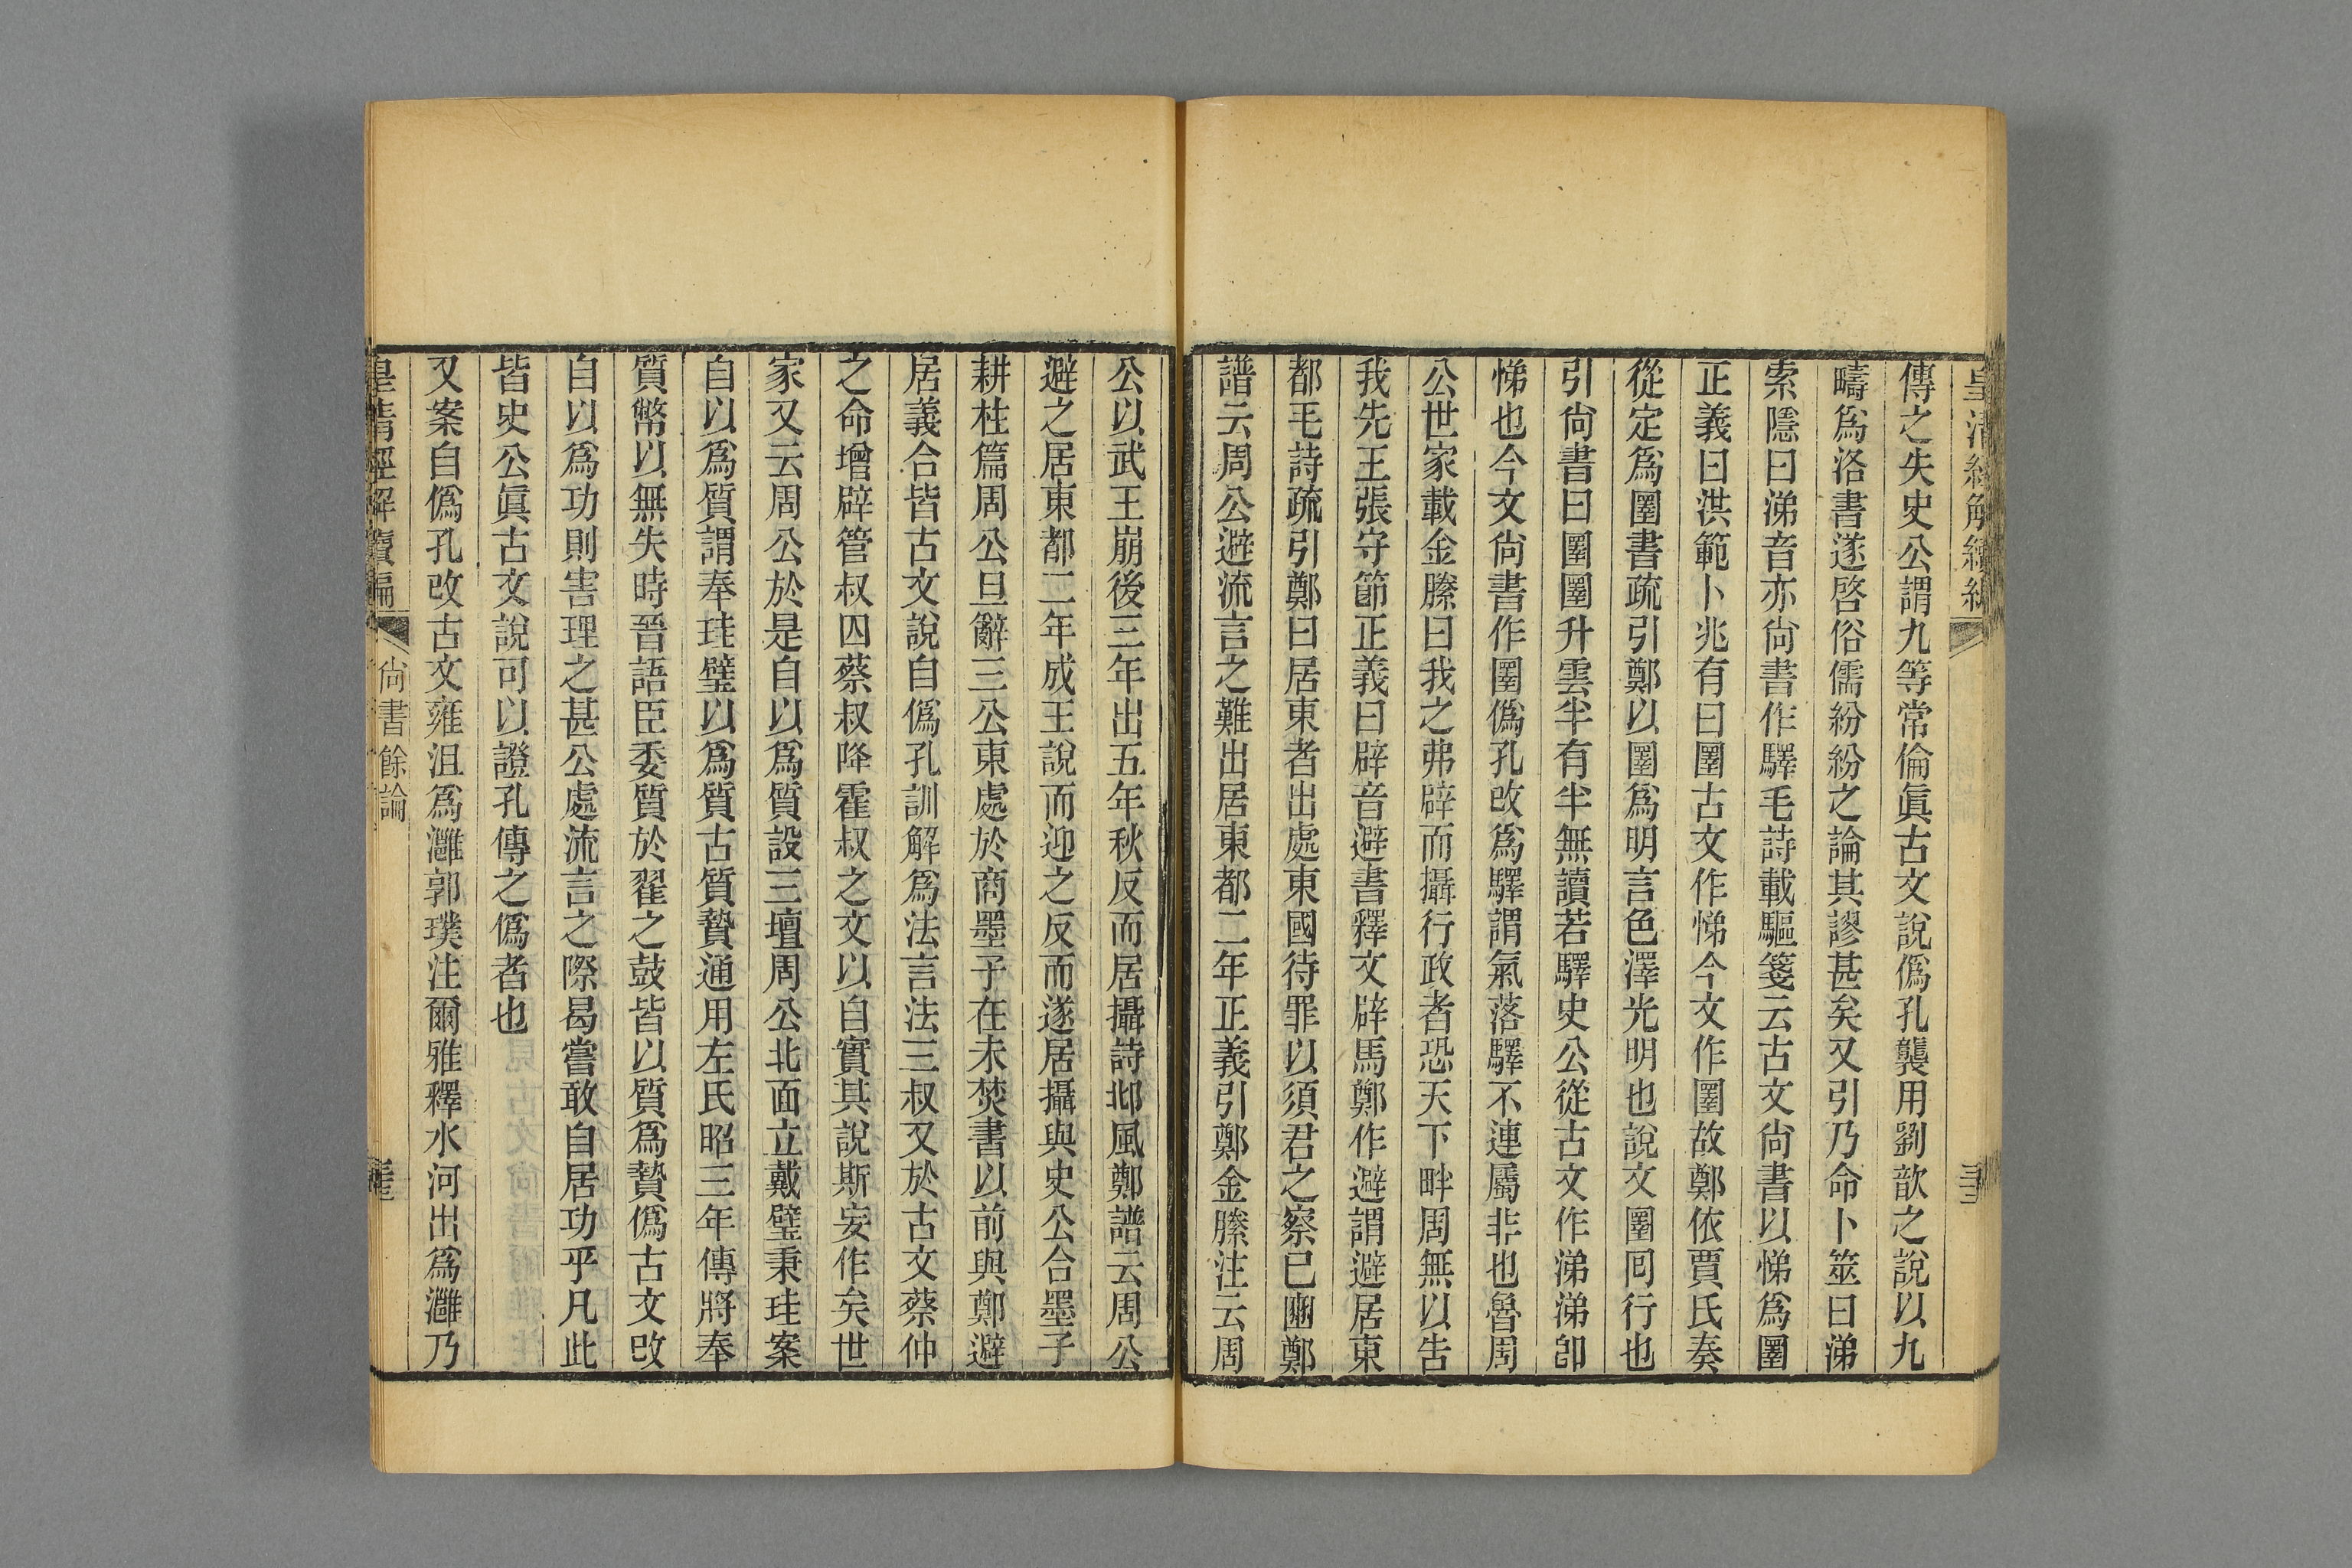 皇清經解續編
傳之失史公謂九等常倫眞古文說僞孔襲用劉歆之說以九
疇爲洛書遂啓俗儒紛紛之論其謬甚矣又引乃命卜筮曰涕
索隱曰涕音亦尙書作驛毛詩載驅箋云古文尙書以悌爲圛
正義曰洪範卜兆有曰圛古文作悌今文作圛故鄭依賈氏奏
從定爲圛書疏引鄭以圛爲明言色澤光明也說文圛回行也
引尙書曰圛圛升雲半有半無讀若驛史公從古文作涕涕卽
悌也今文尙書作圛僞孔改爲驛謂氣落驛不連屬非也魯周
公世家載金縢曰我之弗辟而攝行政者恐天下畔周無以告
我先王張守節正義曰辟音避書釋文辟馬鄭作避謂避居東
都毛詩疏引鄭曰居東者出處東國待罪以須君之察已豳鄭
譜云周公避流言之難出居東都二年正義引鄭金縢注云周
公以武王崩後三年出五年秋反而居攝詩邶風鄭譜云周公
避之居東都二年成王說而迎之反而遂居攝與史公合墨子
耕柱篇周公旦辭三公東處於商墨子在未焚書以前與鄭避
居義合皆古文說自僞孔訓解爲法言法三叔又於古文蔡仲
之命增辟管叔囚蔡叔降霍叔之文以自實其說斯妄作矣世
家又云周公於是自以爲質設三壇周公北面立戴璧秉珪案
自以爲質謂奉珪璧以爲質古質贄通用左氏昭三年傳將奉
質幣以無失時晉語臣委質於翟之鼓皆以質爲贄僞古文改
自以爲功則害理之甚公處流言之際曷嘗敢自居功乎凡此
皆史公眞古文說可以證孔傳之僞者也
又案自僞孔改古文雍沮爲灉郭璞注爾雅釋水河出爲灉乃
皇清經解續編
尙書餘論